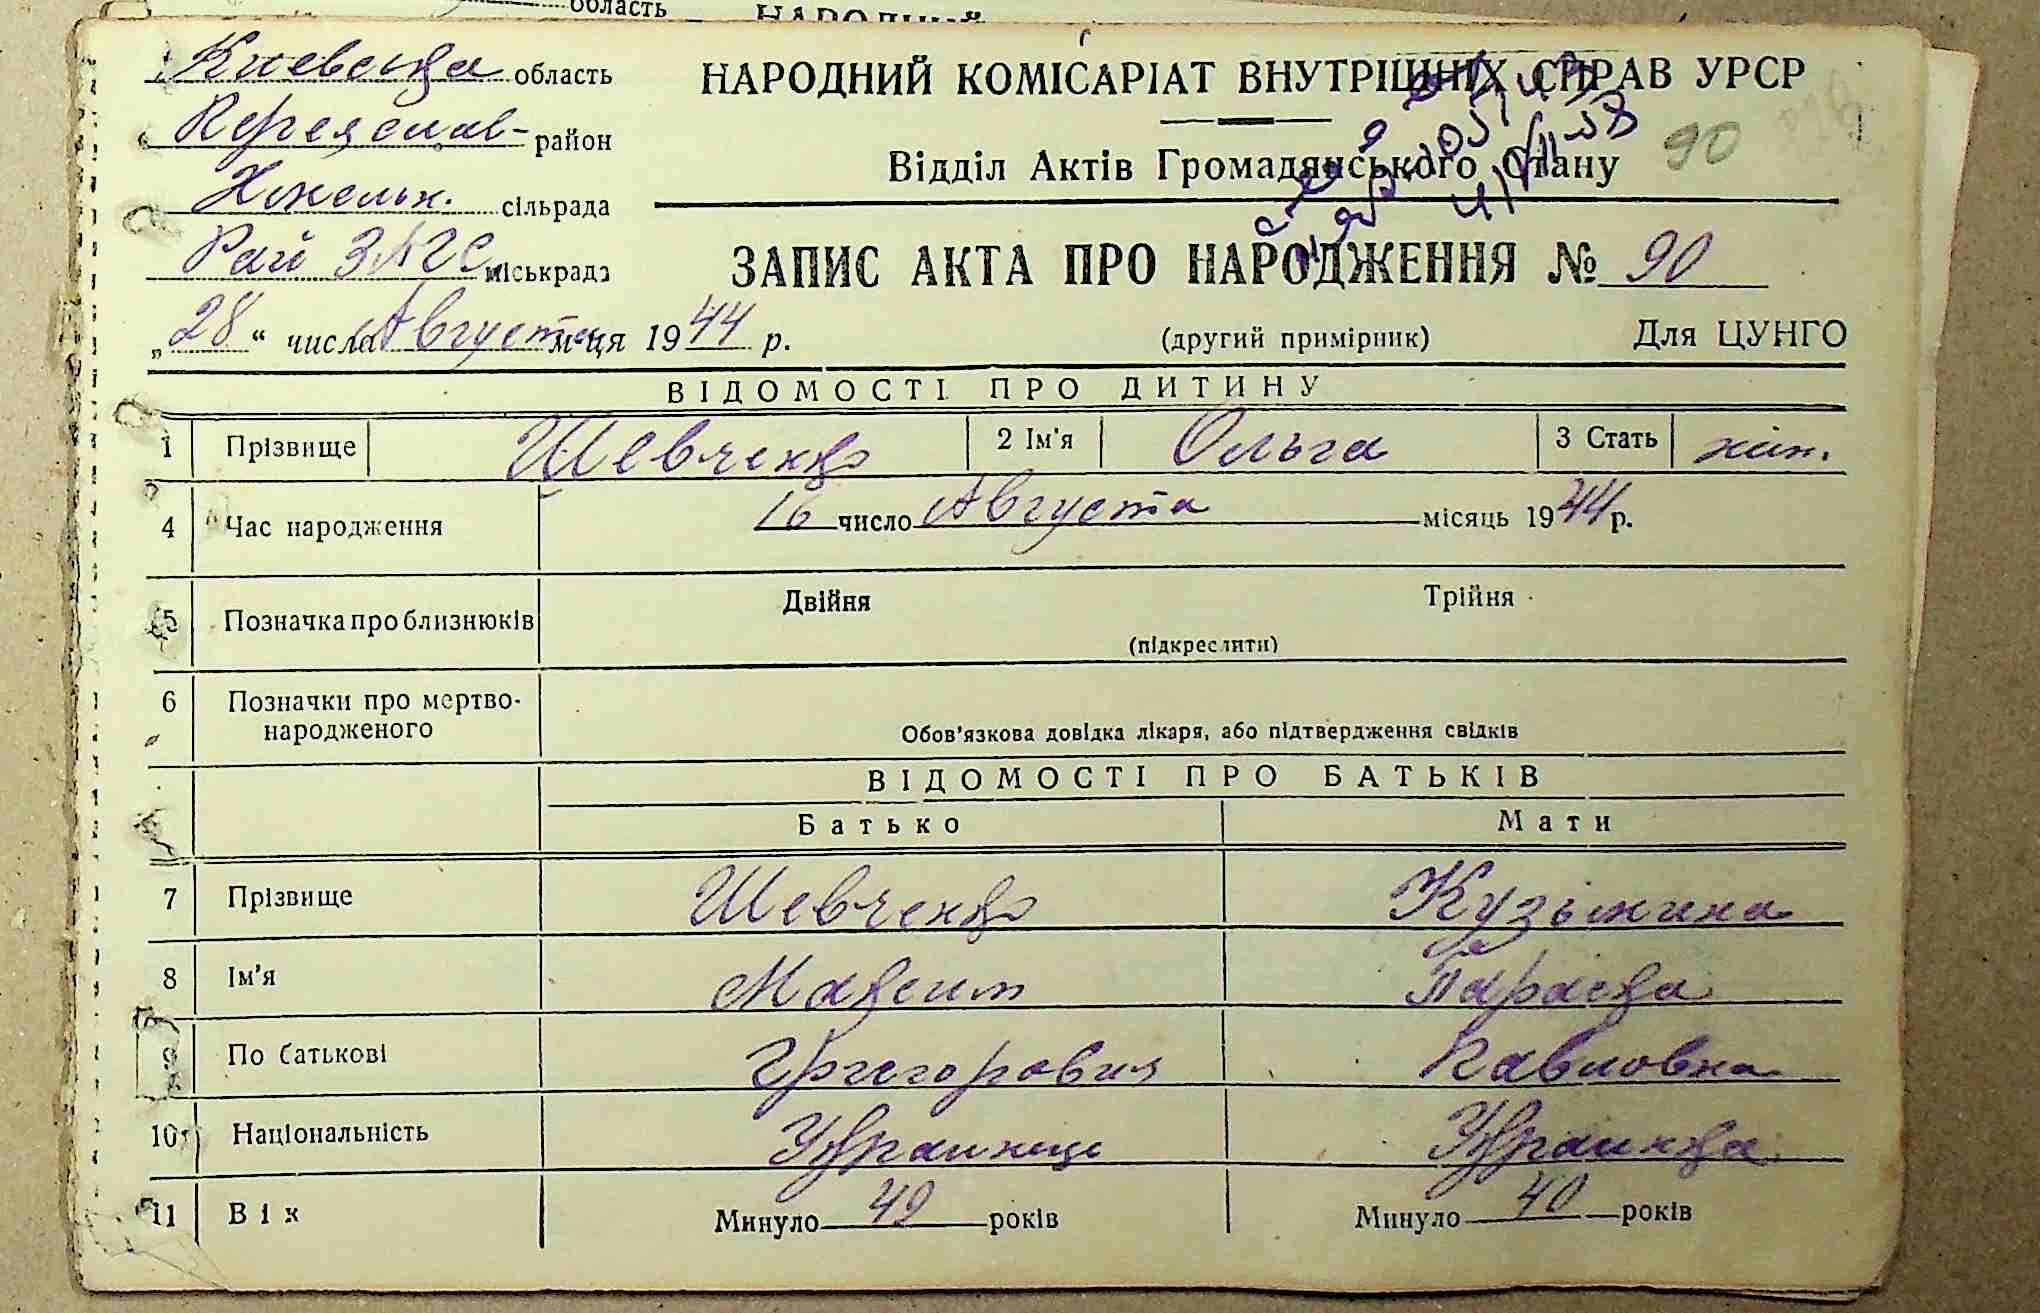 область НАРОДНИЙ
Киевська область
Переяслав- район
Хмельн. сільрада
Рай ЗАГС міськрада
НАРОДНИЙ КОМІСАРІАТ ВНУТРІШНІХ СПРАВ УРСР
Відділ Актів Громадянського Стану 90
ЗАПИС АКТА ПРО НАРОДЖЕННЯ № 90
„28“ числа Августа м-ця 1944 р. (другий примірник) Для ЦУНГО
ВІДОМОСТІ ПРО ДИТИНУ
1 Прізвище Шевченко 2 Ім'я Ольга 3 Стать жін.
4 Час народження 16 число Августа місяць 1944 р.
5 Позначка про близнюків Двійня Трійня
(підкреслити)
6 Позначки про мертво-
народженого Обов'язкова довідка лікаря, або підтвердження свідків
ВІДОМОСТІ ПРО БАТЬКІВ
Батько Мати
7 Прізвище Шевченко Кузьмина
8 Ім'я Максим Параска
9 По батькові Григорович Павловна
10 Національність Украинец Украинка
11 Вік Минуло 49 років Минуло 40 років